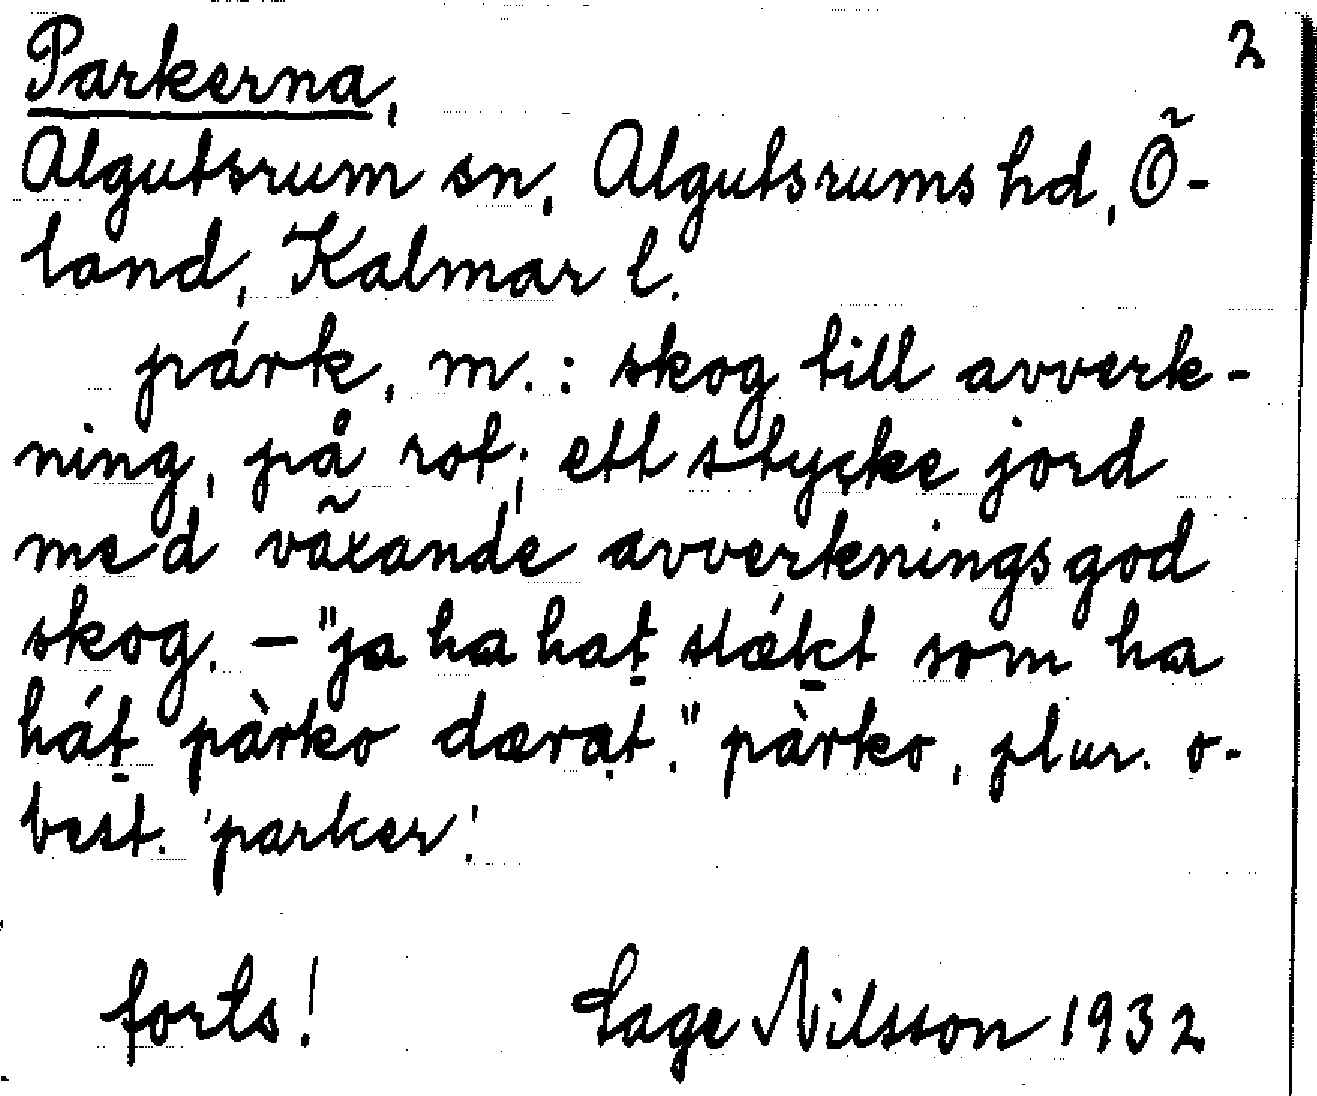 2
Parkerna,
Algutsrum sn, Algutsrums hd, Ö-
land, Kalmar l.
párk, m.: skog till avverk-
ning, på rot; ett stycke jord
med växande avverkningsgod
skog. – "ja ha hat slǽkt som ha
hát pàrko dærat." pàrko, plur. o-
best. 'parker'.
forts! Sage Nilsson 1932